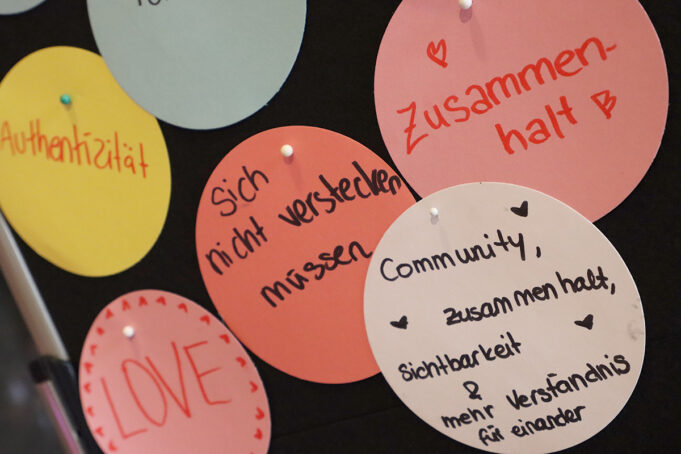 Authentizität
Zusammen-
halt
sich
nicht verstecken
müssen
Community,
zusammenhalt,
sichtbarkeit
&
mehr Verständnis
für einander
LOVE